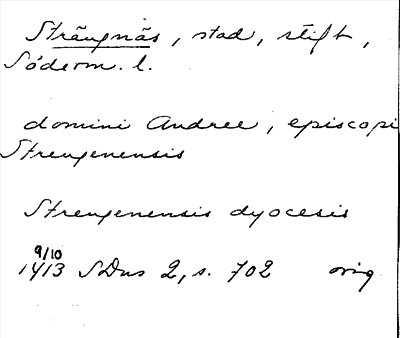 Strängnäs, stad, stift,
Söderm. l.
domini Andree, episcopi
Strengenensis
Strengenensis dyocesis
9/10
1413 SDns 2, s. 702 orig